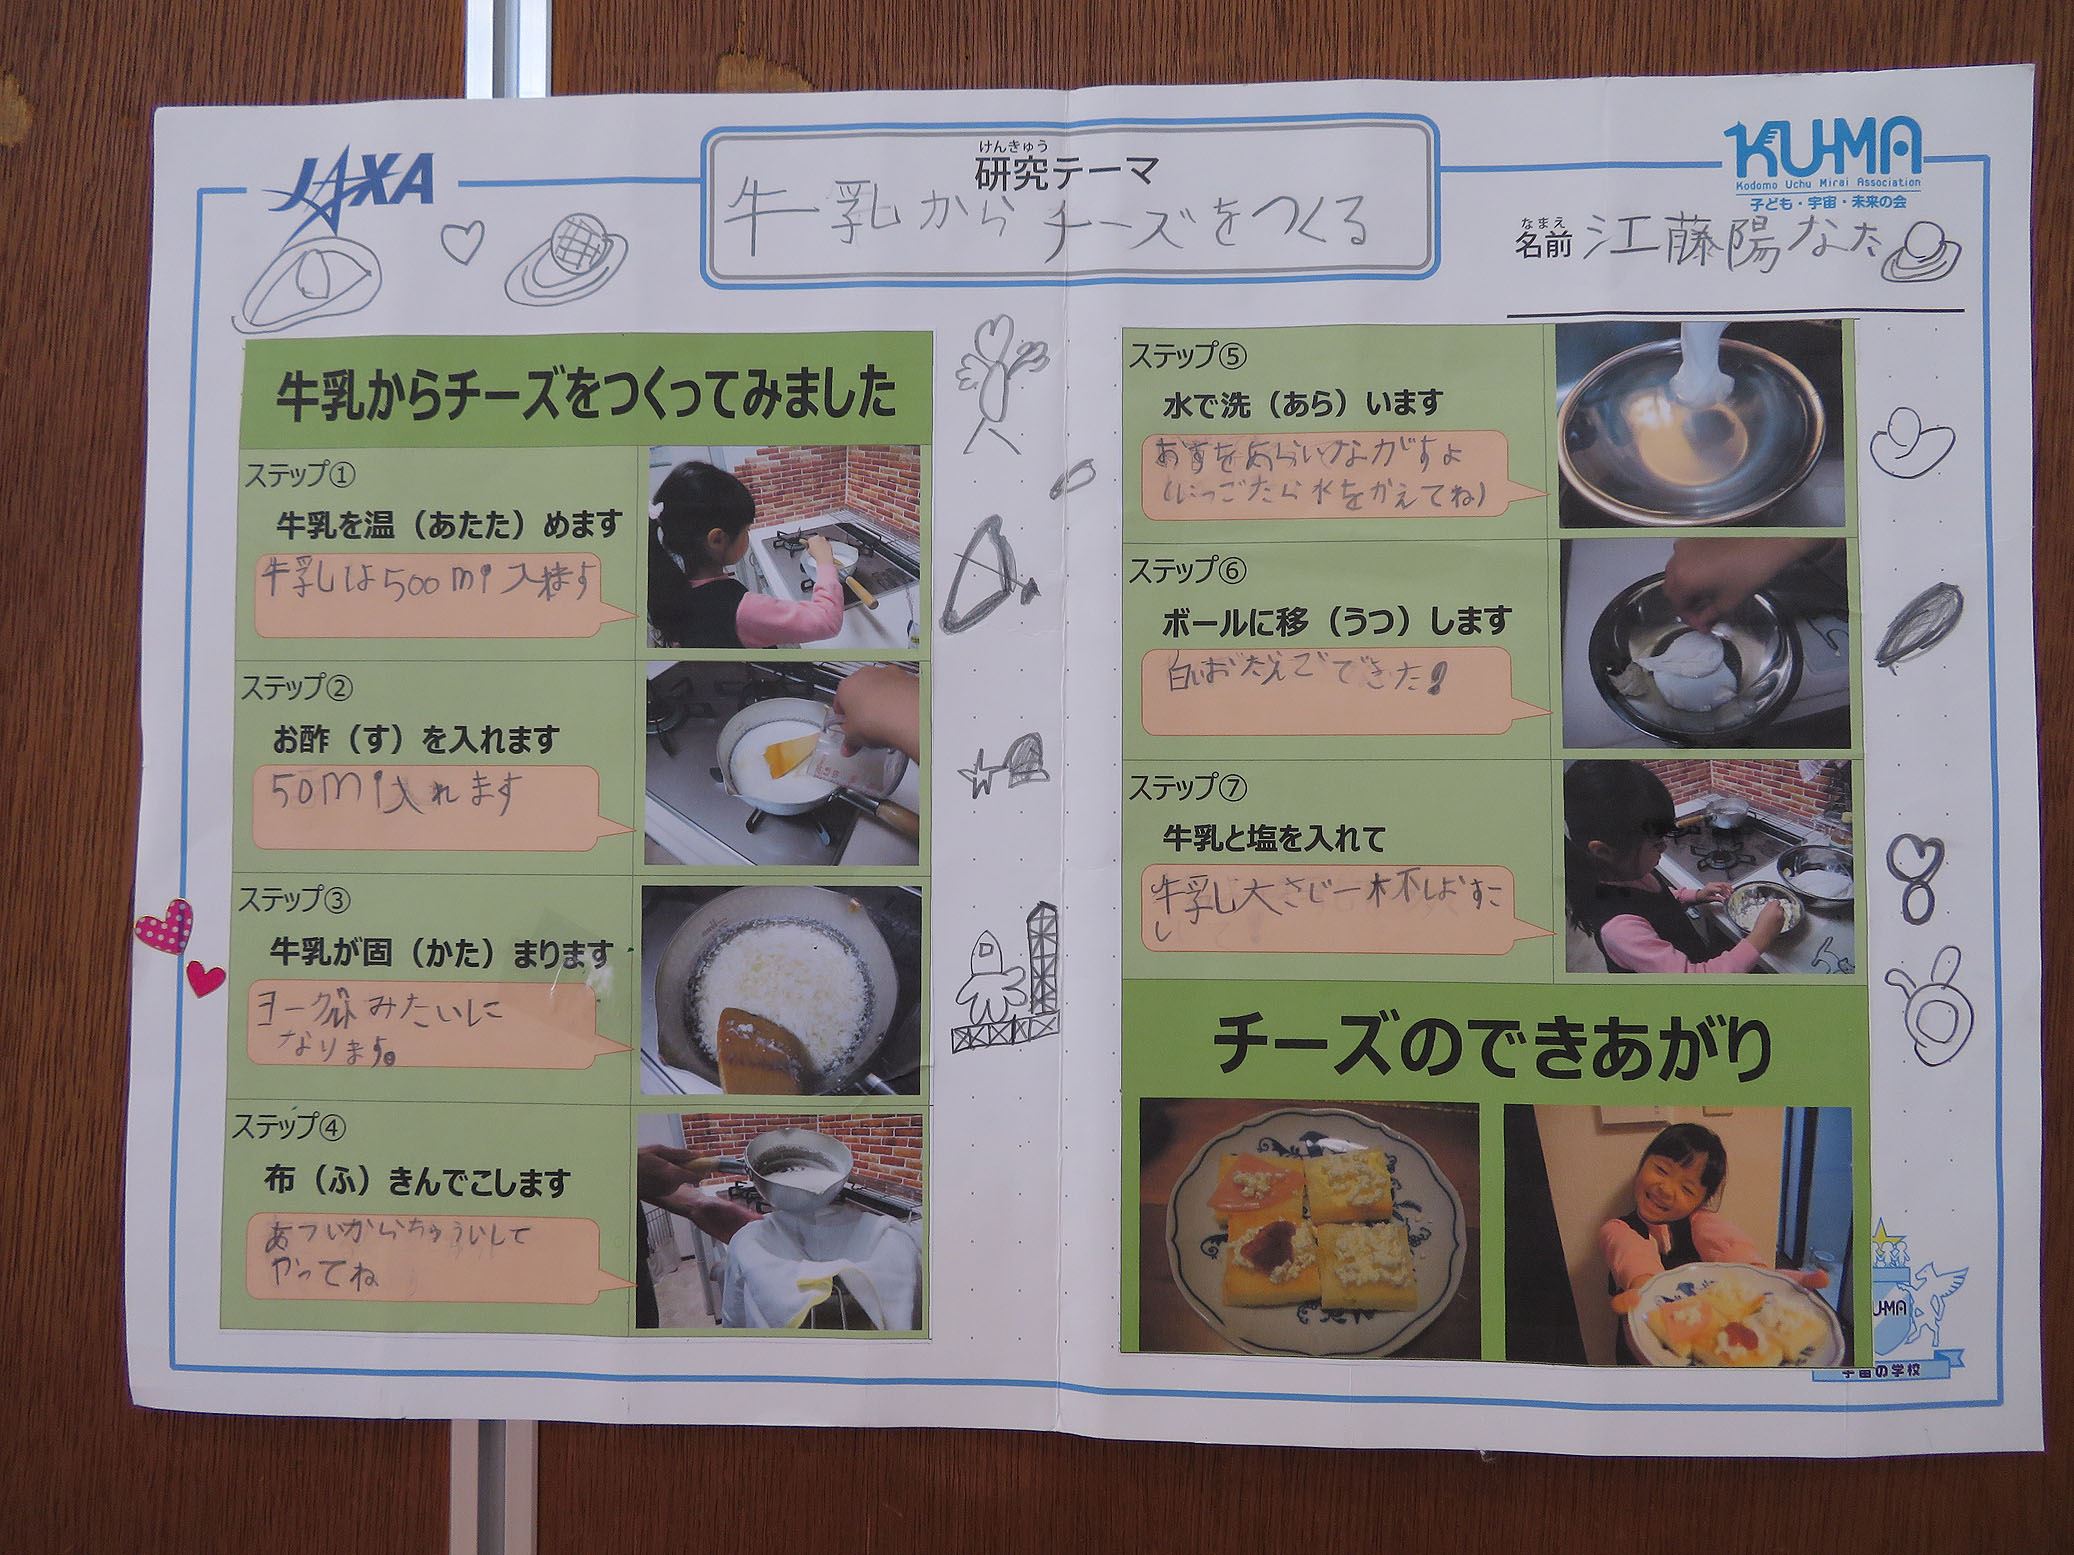 JAXA
けんきゅう
研究テーマ
牛乳からチーズをつくる
KU-MA
Kodomo Uchu Mirai Association
子ども・宇宙・未来の会
なまえ
名前 江藤陽なた
牛乳からチーズをつくってみました
ステップ①
牛乳を温（あたた）めます
牛乳しは500ml入ます
ステップ②
お酢（す）を入れます
50ml入れます
ステップ③
牛乳が固（かた）まります
ヨーグルトみたいに
なります。
ステップ④
布（ふ）きんでこします
あついからちゅういして
やってね
ステップ⑤
水で洗（あら）います
おすをあらいながすよ
(にごったら水をかえてね)
ステップ⑥
ボールに移（うつ）します
白いおだんごできた!
ステップ⑦
牛乳と塩を入れて
牛乳し大さじ一杯しおすこ
し
チーズのできあがり
U-MA
宇宙の学校